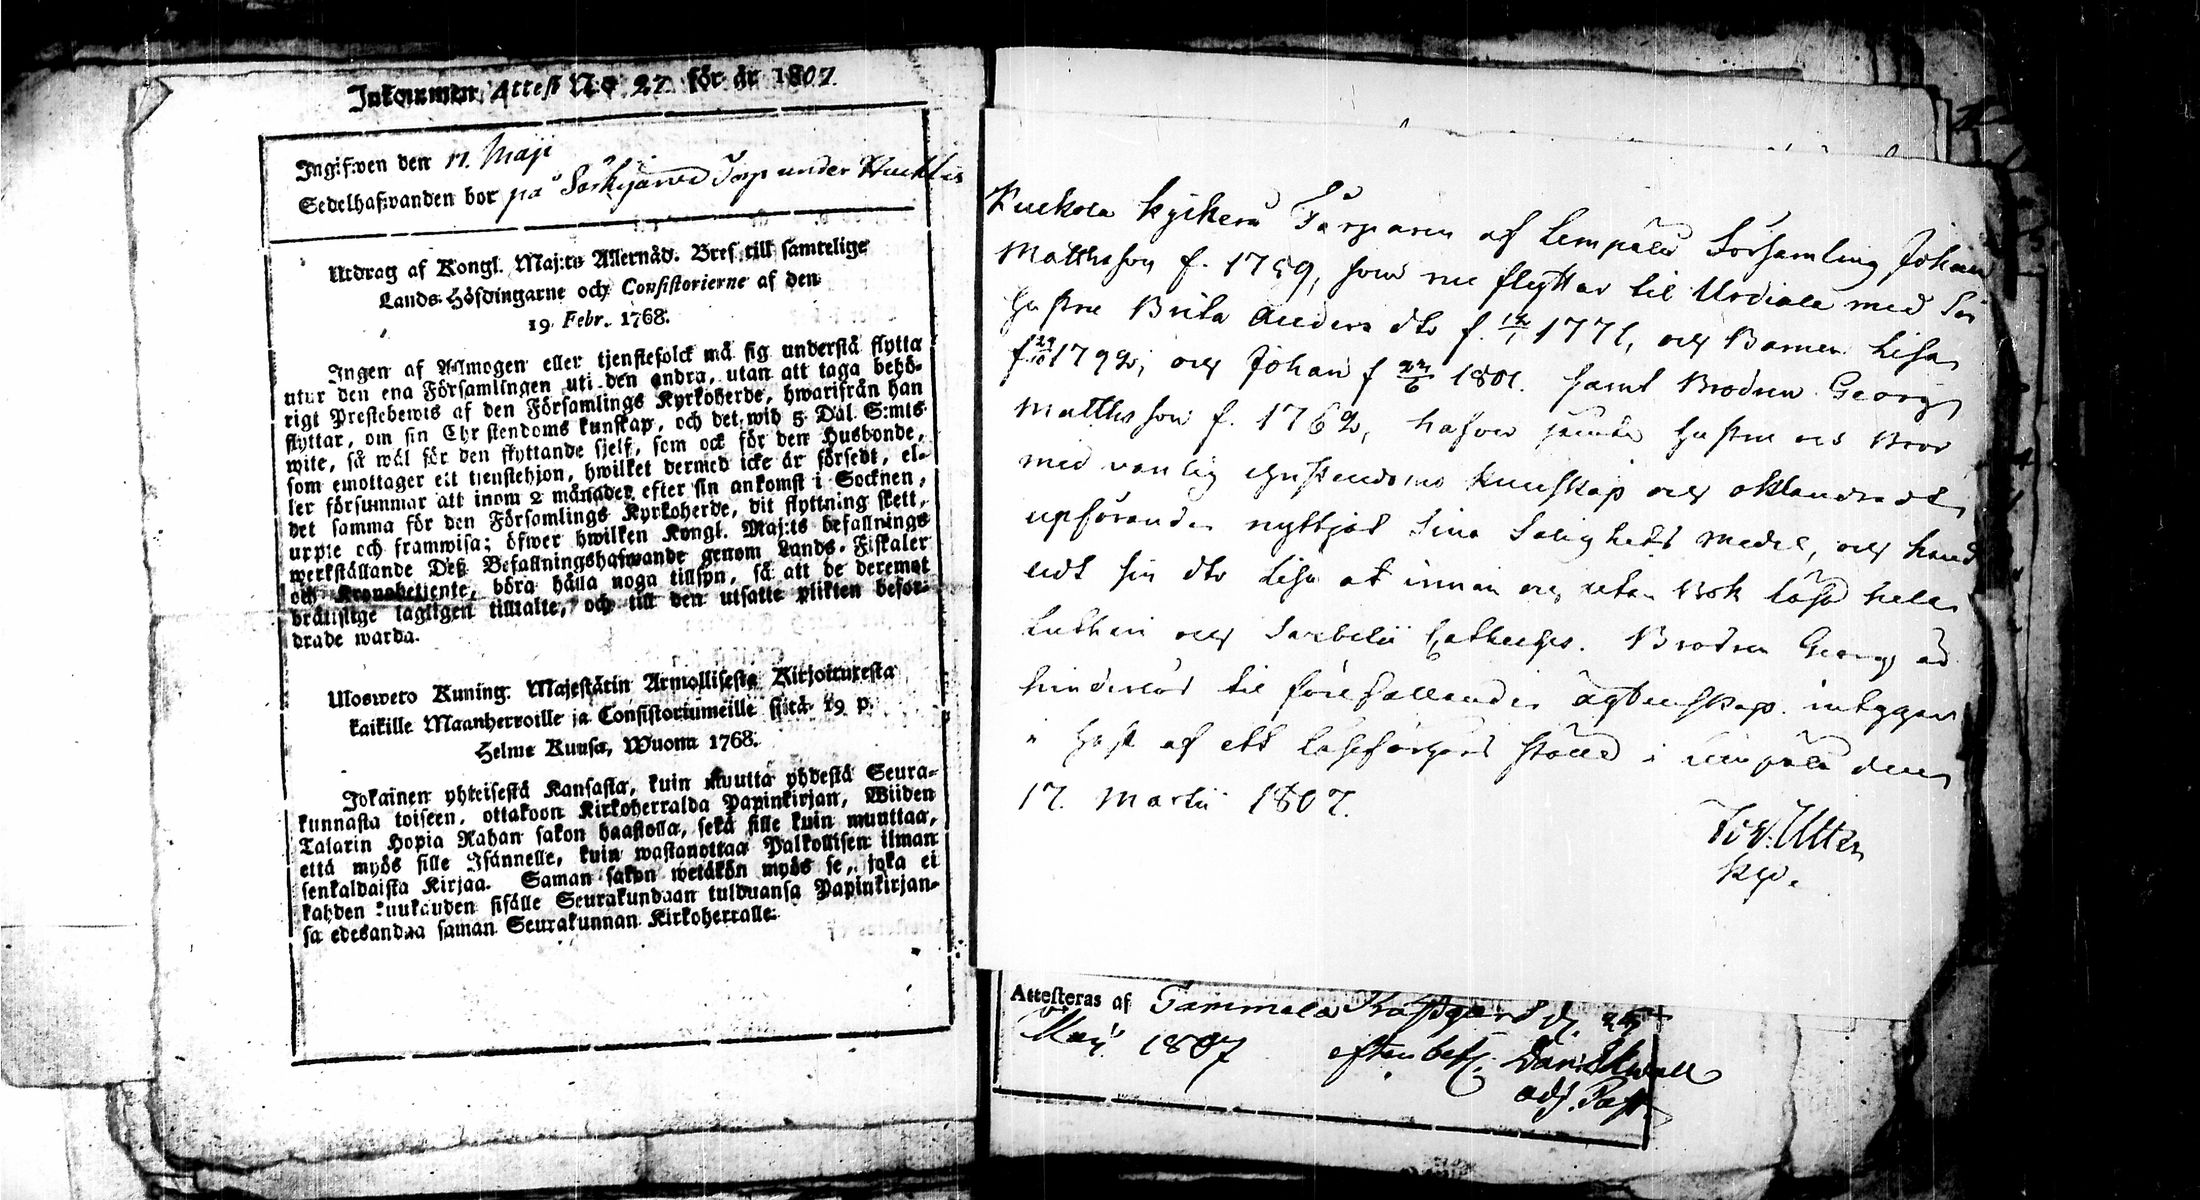 Inkommen Attest N:o 27 för år 1807.
Ingifwen den 17. Maji
Sedelhafwanden bor på Torp under
Utdrag af Kongl. Maj:ts Allernåd. Bref till samtelige
Lands-Höfdingarne och Consistorierne af den
19 Febr. 1768.
Ingen af Allmogen eller tjenstefolck må sig understå flytta
utur den ena Församlingen uti den andra, utan att taga behö-
rigt Prestebewis af den Församlings Kyrkoherde, hwarifrån han
flyttar, om sin Christendoms kunskap, och det wid 5 Dal. S:mts
wite, så wäl för den flyttande sjelf, som ock för den Husbonde,
som emottager ett tienstehjon, hwilket dermed icke är försedt, el-
ler försummar att inom 2 månader efter sin ankomst i Socknen,
det samma för den Församlings Kyrkoherde, dit flyttning skett,
uppte och framwisa; öfwer hwilken Kongl. Maj:ts befallnings
werkställande Deß Befallningshafwande genom Lands-Fiskaler
och Kronobetjente, böra hålla noga tillsyn, så att de deremot
bråttslige lagligen tilltalte, och till den utsatte plikten befor-
drade warda.
Ulosweto Kuning. Majestätin Armollisesta Kirjoituresta
kaikille Maanherroille ja Consistoriumeille siitä 19 p.
Helme Kuusa, Wuonn 1768.
Jokainen yhteisestä Kansasta, kuin muutta yhdestä Seura-
kunnasta toiseen, ottakoon Kirkoherralda Papinkirjan, Wiiden
Talarin Hopia Rahan sakon haastolla, sekä sille kuin muuttaa,
että myös sille Isännelle, kuin wastanottaa Palkollisen ilman
senkaldaista Kirjaa. Saman sakon wetäkön myös se, joka ei
kahden kuukauden sisälle Seurakundaan tulduansa Papinkirjan-
sa edesandaa saman Seurakunnan Kirkoherralle.
Kuckola Torparen af Lempälä Församling Johan
Mattsson f. 1759, som nu flyttar til Urdiala med
Hustru Brita Anders dtr f. 1771, och Barnen Lisa
f 29/10 1792, och Johan f 22/6 1801. samt Brodren Georg
Matthsson f. 1762, hafva jemte Hustru och Bror
med vanlig christendoms kunskap och oklandradt
upförande nyttjat sina Salighets medel, och hand
ledt sin dtr Lisa at innan och utan Bok läsa hela
Lutheri och Svebelii Catheches. Brodren Georg är
hinderlös til förefallande ägtenskap. intygar
i hast af ett i Lempälä den
17. Martii 1807.
Attesteras af Tammela Prästgård d. 25
Maji 1807 efter befl.
adj. Past.